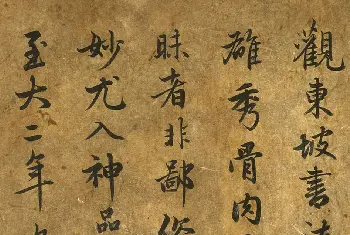 觀東坡書法
雄秀骨肉
昧者非鄙俗
妙尤入神品
至大二年